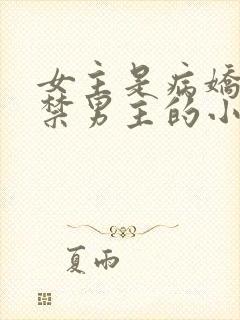 女主是病嬌
禁男主的小
夏雨